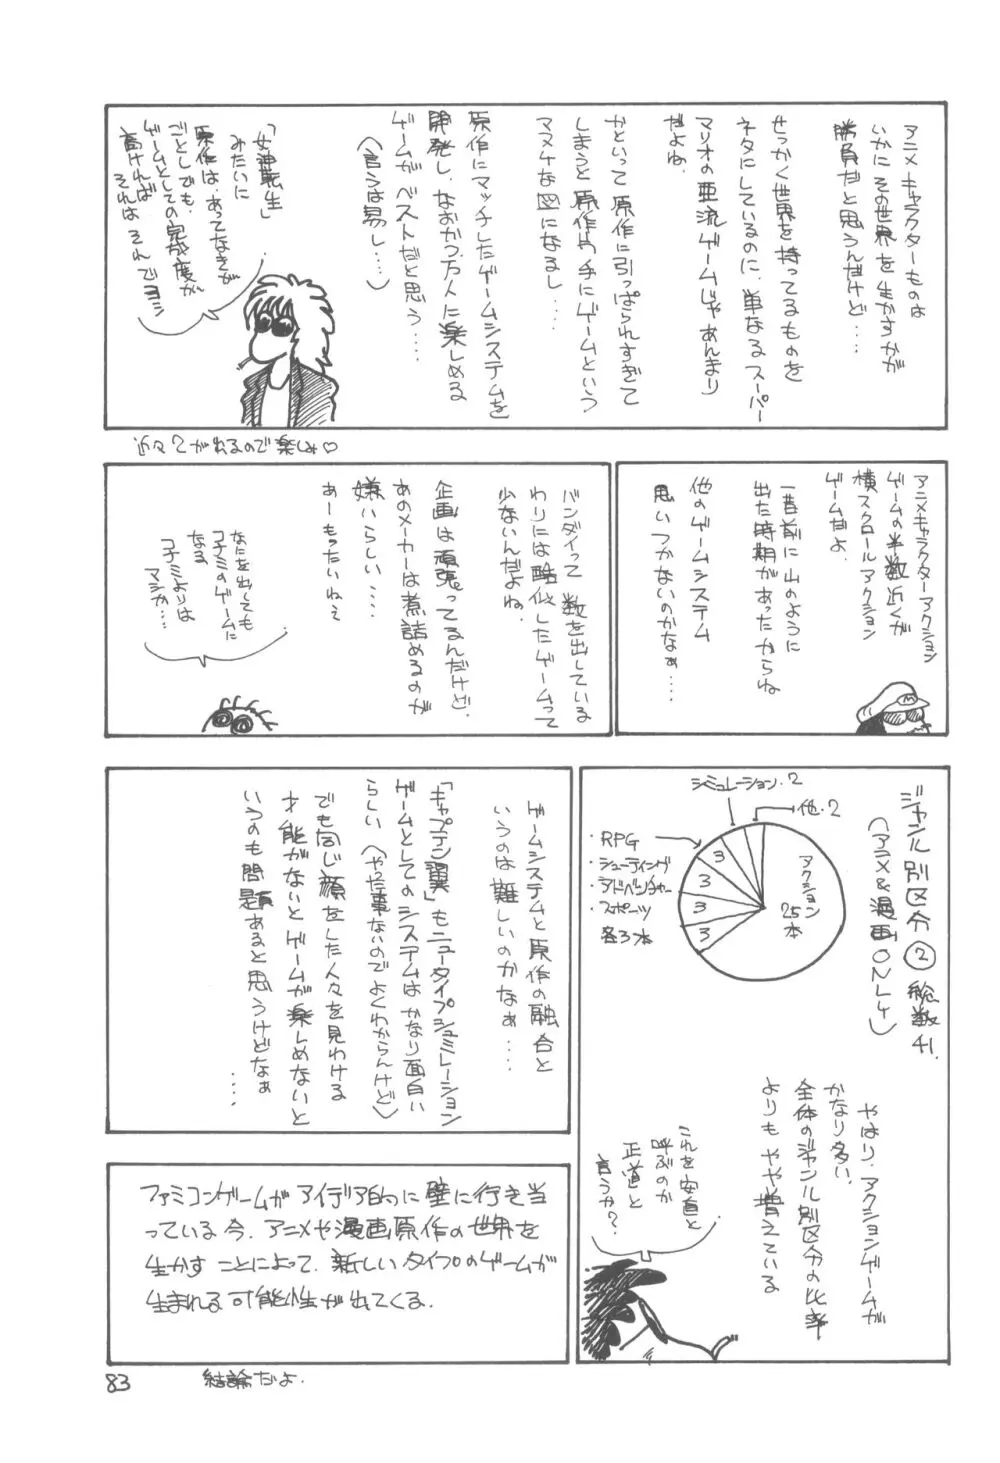 アニメキャラクターものは
いかにその世界を生かすかが
勝負だと思うんだけど‥‥
せっかく世界を持ってるものを
ネタにしているのに、単なるスーパー
マリオの亜流ゲームじゃあんまり
だよね。
かといって原作に引っぱられすぎて
しまうと原作や手にゲームという
マヌケな図になるし‥‥
原作にマッチしたゲームシステムを
開発し、なおかつ万人に楽しめる
ゲームがベストだと思う‥‥
（言うは易し‥‥）
「女神転生」
みたいに
原作は、あってなきが
ごとしでも、
ゲームとしての完成度が
高ければ
それは それでヨシ
近々2が出るので楽しみ♡
アニメキャラクターアクション
ゲームの半数近くが
横スクロールアクション
ゲームだよ。
一昔前に山のように
出た時期があったからね
他のゲームシステム
思いつかないのかなぁ‥‥
M
バンダイって 数を出している
わりには酷似したゲームって
少ないんだよね。
企画は頑張ってるんだけど、
あのメーカーは煮詰めるのが
嫌いらしい‥‥‥
あーもったいねぇ
なにを出しても
コナミのゲームに
なる
コナミよりは
マシか‥‥
ジャンル別区分② 総数41.
（アニメ&漫画ONLY）
シミュレーション・2
他・2
・RPG
・シューティング
・アドベンチャー
・スポーツ
各3本
3
3
3
3
アクション
25本
やはり、アクションゲームが
かなり多い、
全体のジャンル別区分の比率
よりも やや増えている
これを安直と
呼ぶのか
正道と
言うか?
ゲームシステムと原作の融合と
いうのは難しいのかなぁ‥‥
「キャプテン翼」もニュータイプシュミレーション
ゲームとしてのシステムは かなり面白い
らしい（やった事ないのでよくわからんけど）
でも同じ顔をした人々を見わける
才能がないとゲームが楽しめないと
いうのも問題あると思うけどなぁ
‥‥
ファミコンゲームが アイデア的に壁に行き当
っている今、アニメや漫画原作の世界を
生かす ことによって、新しいタイプのゲームが
生まれる可能性が出てくる.
結論だよ.
83